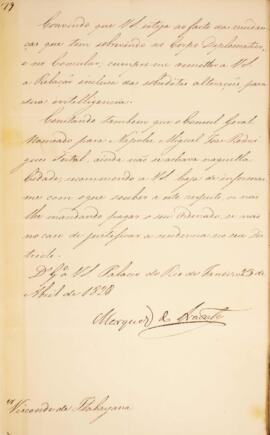 Convindo que VS. esteja ao facto das mudan-
ças que tem sobrevindo no Corpo Diplomatico,
e no Consular, cumpre-me remetter a VS.
a Relação inclusa das sobreditas alterações, para
sua intelligencia.
Constando tambem que o Consul Geral
Nomeado para Napoles Miguel José Rodri
gues ainda não se achava naquella
Cidade, recommendo a VS. haja de informar
me com o que souber a este respeito e não
lhe mandando pagar o seu Ordenado, se não
no caso de justificar a residencia no seu Des
tricto.
Ds. Ge. a VS. Palacio do Rio de Janeiro 23 de
Abril de 1828
Marquez de Aracaty
Visconde de Itabayana